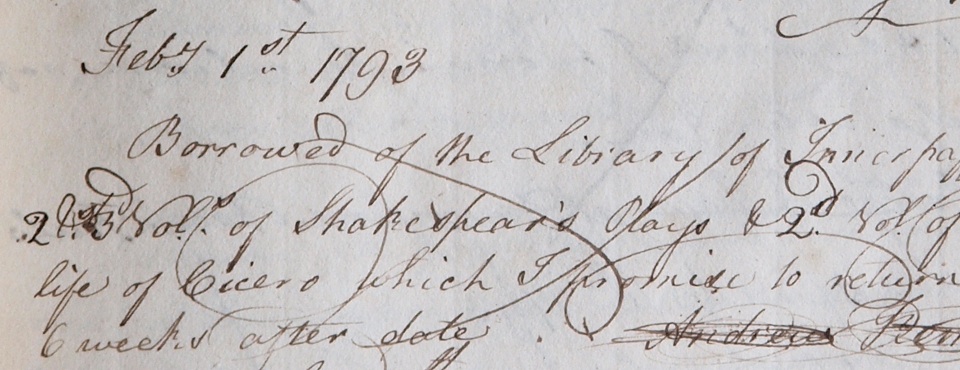 Feby 1st 1793
Borrowed of the Library of Innerpa
2d & 3d Vols. of Shakespear's Plays & 2d Vol. of
life of Cicero which I promise to return
6 weeks after date. Andrew